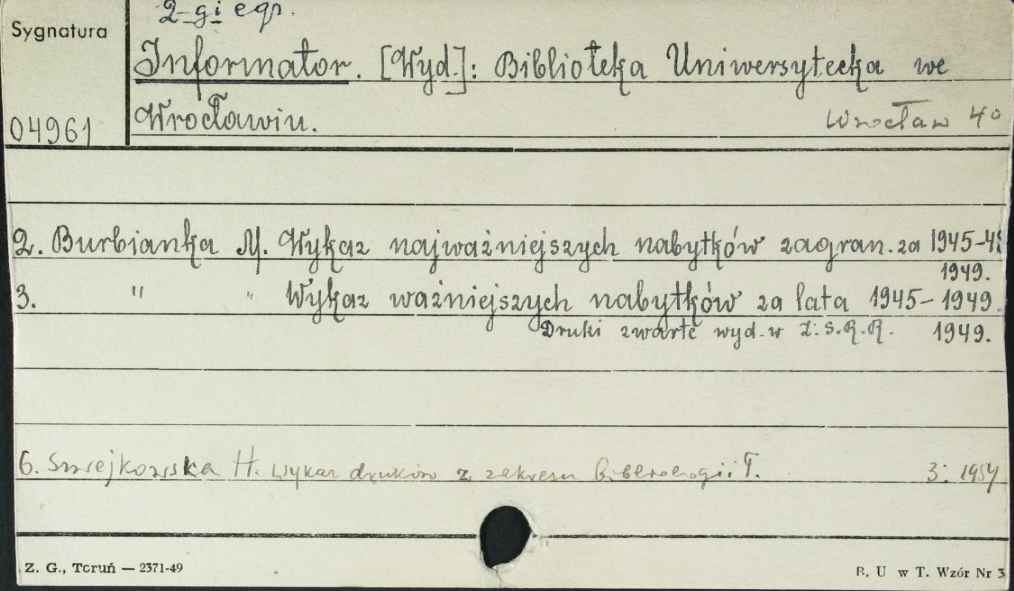 2-gi egz.
Sygnatura
Informator. [Wyd.]: Biblioteka Uniwersytecka we
04961 Wrocławiu. Wrocław 4°
2. Burbianka M. Wykaz najważniejszych nabytków zagran. za 1945-48
1949.
3. " " Wykaz ważniejszych nabytków za lata 1945-1949.
Druki zwarte wyd. w Z.S.R.R. 1949.
6. H. wykaz druków z zakresu T. 3: 1957
Z. G., Toruń — 2371-49
B. U w T. Wzór Nr 3